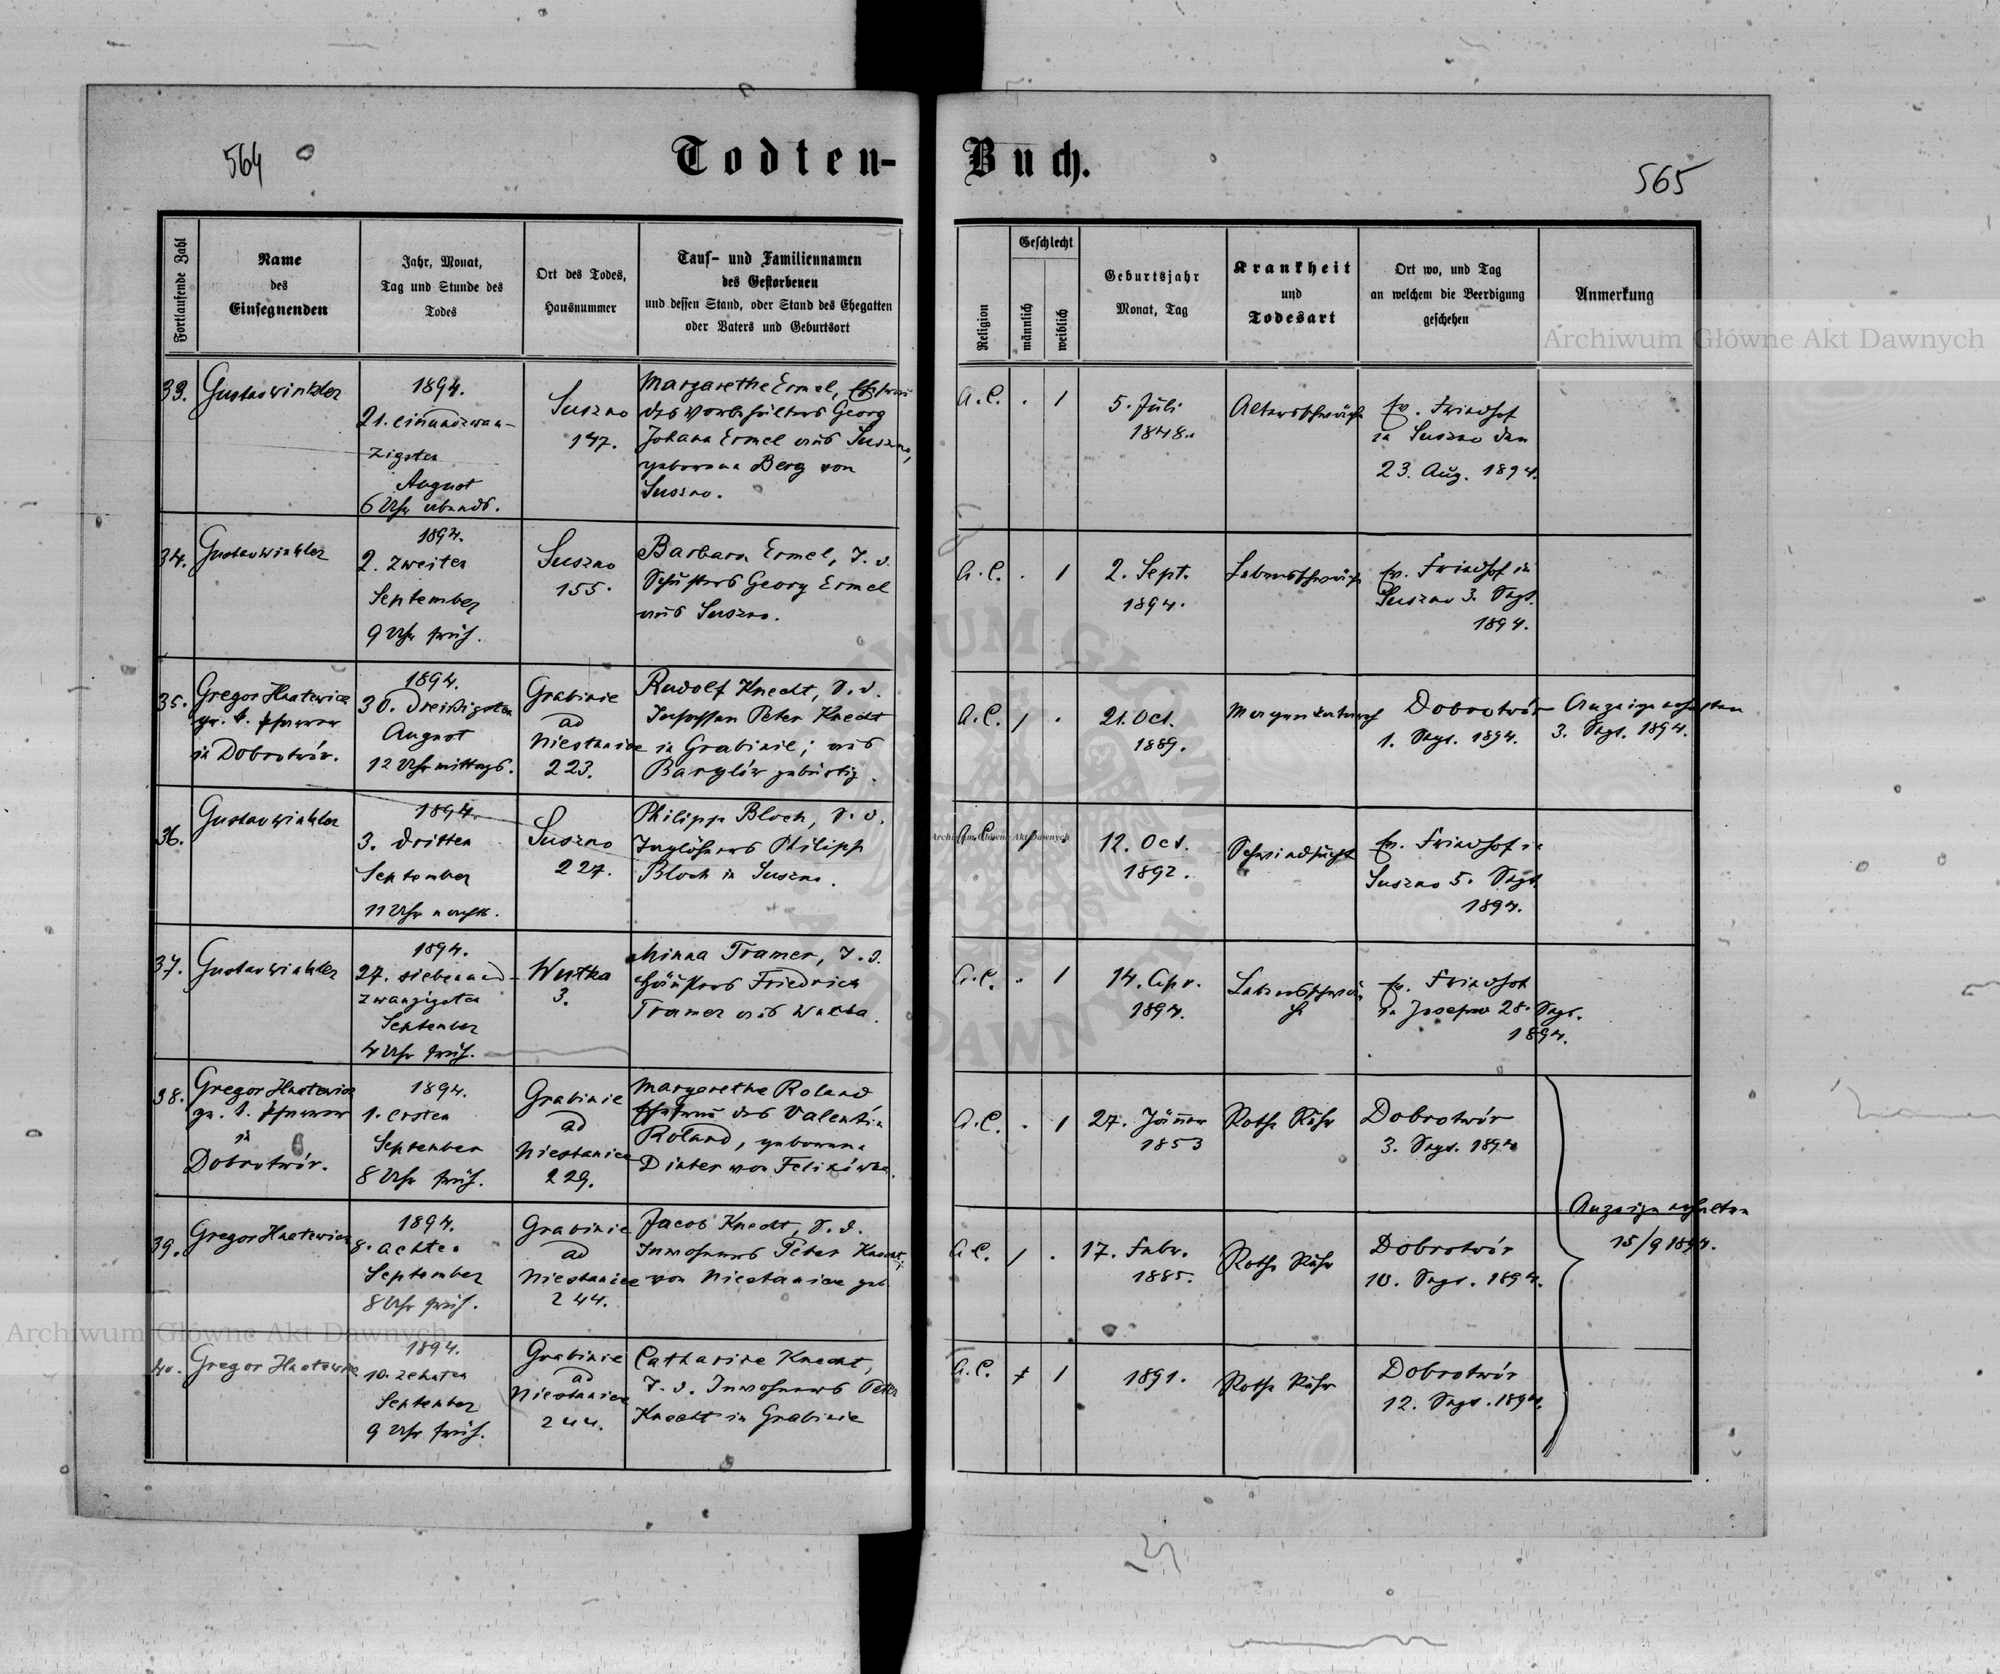 564
Todten-
Buch.
565
Fortlaufende Zahl
Name
des
Einsegnenden
Jahr, Monat,
Tag und Stunde des
Todes
Ort des Todes,
Hausnummer
Tauf- und Familiennamen
des Gestorbenen
und dessen Stand, oder Stand des Ehegatten
oder Vaters und Geburtsort
Religion
Geschlecht
männlich
weiblich
Geburtsjahr
Monat, Tag
Krankheit
und
Todesart
Ort wo, und Tag
an welchem die Beerdigung
geschehen
Anmerkung
33.
Gustav Winkler
1894.
21. einundzwan-
zigsten
August
6 Uhr abends.
Suszno
147.
Margarethe Ermel, Ehefrau
des Georg
Johann Ermel aus Suszno,
geborene Berg von
Suszno.
A. C.
.
1
5. Juli
1848.
Altersschwäche
Ev. Friedhof
in Suszno den
23. Aug. 1894.
34.
Gustav Winkler
1894.
2. zweiten
September
9 Uhr früh.
Suszno
155.
Barbara Ermel, T. d.
Schusters Georg Ermel
aus Suszno.
A. C.
.
1
2. Sept.
1894.
Lebensschwäche
Ev. Friedhof in
Suszno 3. Sept.
1894.
35.
Gregor Hnatewicz
gr. k. Pfarrer
in Dobrotwór.
1894.
30. Dreißigsten
August
12 Uhr mittags.
Grabinie
ad
Niestanice
223.
Rudolf Knecht, S. d.
Insassen Peter Knecht
in Grabinie; aus
gebürtig.
A. C.
1
.
21. Oct.
1889.
Dobrotwór
1. Sept. 1894.
Anzeige erhalten
3. Sept. 1894.
36.
Gustav Winkler
1894.
3. dritten
September
11 Uhr nachts.
Suszno
227.
Philipp Bloch, S. d.
Taglöhners Philipp
Bloch in Suszno.
A. C.
1
.
12. Oct.
1892.
Schwindsucht
Ev. Friedhof in
Suszno 5. Sept.
1894.
37.
Gustav Winkler
1894.
27. siebenund-
zwanzigsten
September
4 Uhr früh.
3.
Minna Tramer, T. d.
Häuslers Friedrich
Tramer aus
A. C.
.
1
14. Apr.
1894.
Lebensschwäche
Ev. Friedhof
in Josefow 28. Sept.
1894.
38.
Gregor Hnatewicz
gr. k. Pfarrer
in
Dobrotwór.
1894.
1. ersten
September
8 Uhr früh.
Grabinie
ad
Niestanice
229.
Margarethe Roland
Ehefrau des Valentin
Roland, geborene
von
A. C.
.
1
27. Jänner
1853
Rothe Ruhr
Dobrotwór
3. Sept. 1894
39.
Gregor Hnatewicz
1894.
8. achten
September
8 Uhr früh.
Grabinie
ad
Niestanice
244.
Jacob Knecht, S. d.
Inwohners Peter Knecht,
von Niestanice geb.
A. C.
1
.
17. Febr.
1885.
Rothe Ruhr
Dobrotwór
10. Sept. 1894.
Anzeige erhalten
15/9 1894.
40.
Gregor Hnatewicz
1894.
10. zehnten
September
9 Uhr früh.
Grabinie
ad
Niestanice
244.
Catharine Knecht,
T. d. Inwohners Peter
Knecht in Grabinie
A. C.
1
1891.
Rothe Ruhr
Dobrotwór
12. Sept. 1894.
Archiwum Główne Akt Dawnych
Archiwum Główne Akt Dawnych
Archiwum Główne Akt Dawnych